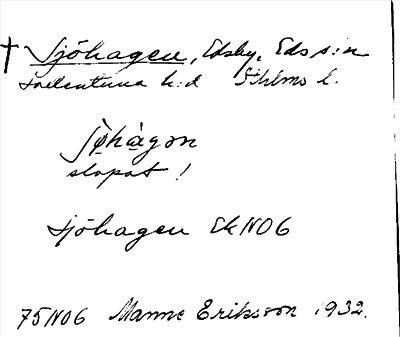 † Sjöhagen, Edsby, Eds s:n
Sollentuna h:d Sthlms l.
slopat!
Sjöhagen Ek NO6
75 NO6 Manne Eriksson 1932.